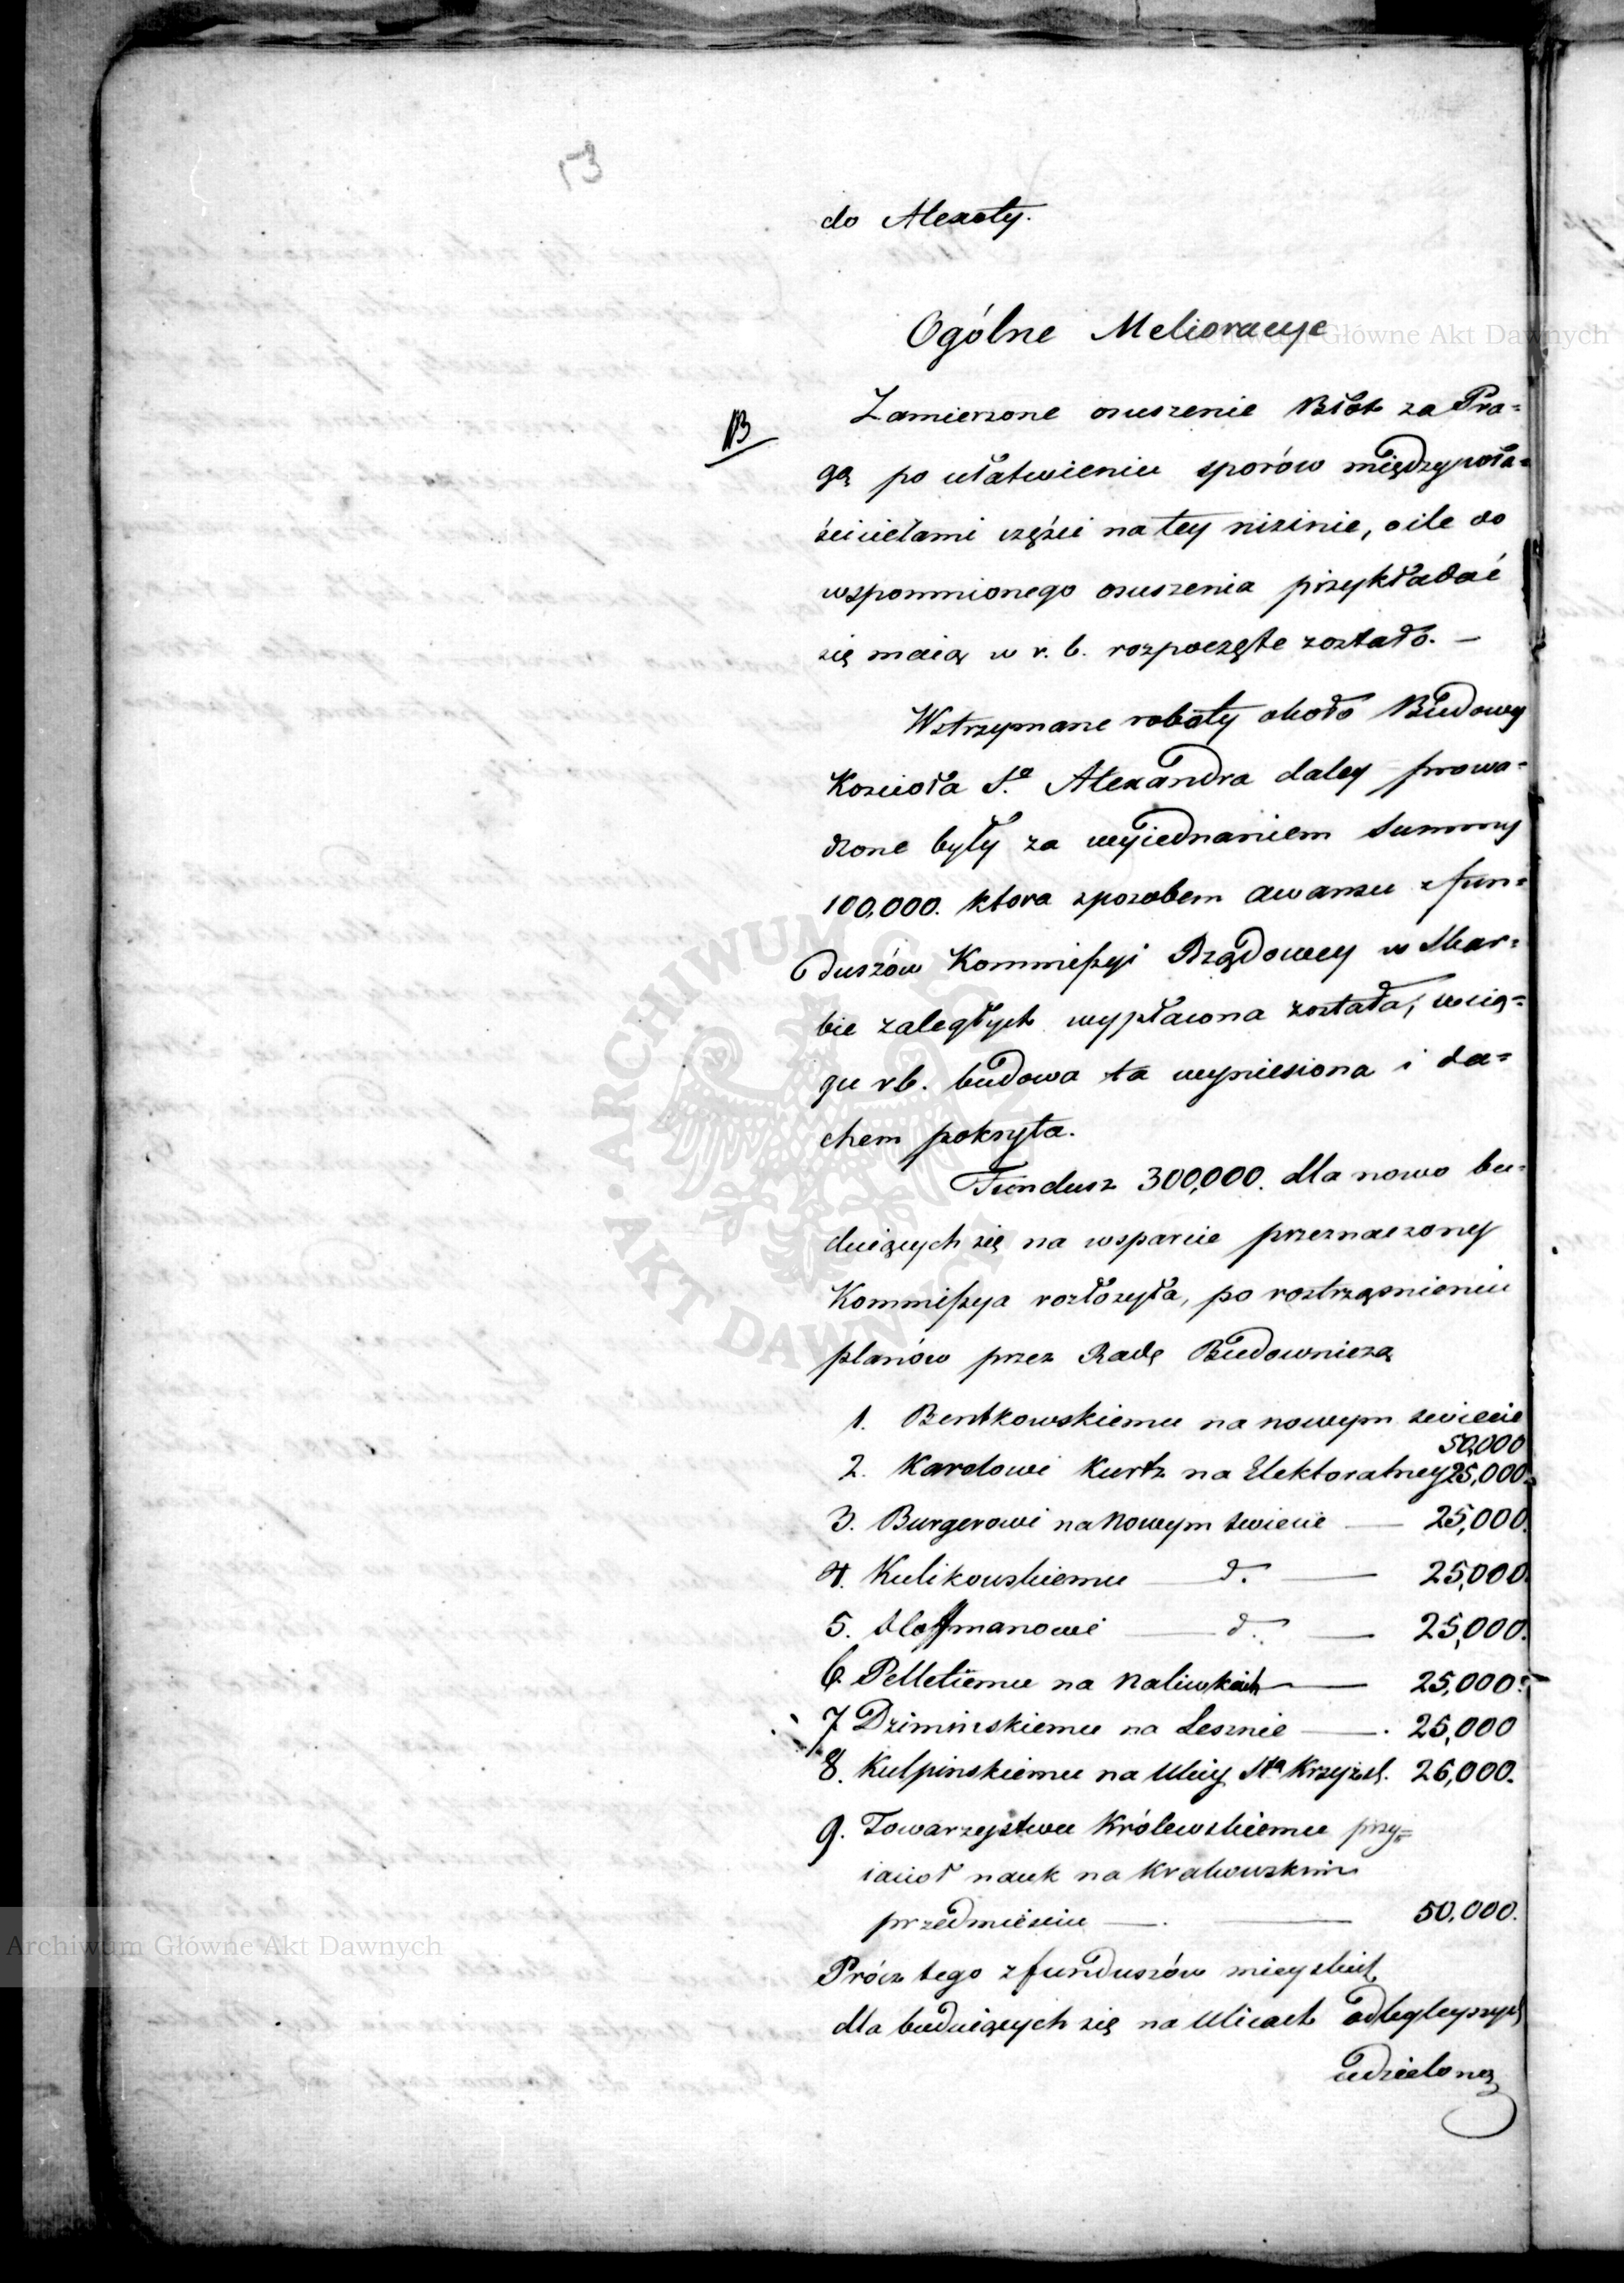 53
do Alexoty.
Ogólne Melioracye
B
Zamierzone osuszenie Błot za Pra=
gą po ułatwieniu sporów między właś=
ścicielami części na tey nizinie, o ile do
wspomnionego osuszenia przykładać
się maią w r. b. rozpoczęte zostało. —
Wstrzymane roboty około Budowy
Kościoła Sgo Alexandra daley prowa=
dzone były za wyiednaniem Summy
100,000. ktora sposobem awansu z fun=
duszów Kommissyi Rządowey w Skar=
bie zaległych wypłacona została, w cią=
gu rb. budowa ta wyniesiona i da=
chem pokryta.
Fundusz 300,000. dla nowo bu=
duiących się na wsparcie przeznaczony
Kommissya rozłożyła, po roztrząśnieniu
planów przez Radę Budowniczą
1. Bentkowskiemu na nowym świecie
50,000
2. Karolowi Kurtz na Elektoralney 25,000.
3. Burgerowi na Nowym świecie — 25,000.
4. Kulikowskiemu — d. — 25,000.
5. Hoffmanowi — d. — 25,000.
6. Pelletiemu na Naliwkach — 25,000.
7. Dziminskiemu na Lesznie — 25,000
8. Kulpinskiemu na Ulicy Sto Krzyzk. 26,000.
9. Towarzystwu Królewskiemu przy=
iaciół nauk na Krakowskim
przedmieściu — — 50,000.
Prócz tego z funduszów mieyskich
dla buduiących się na Ulicach odlegleyszych
udzielono
Archiwum Główne Akt Dawnych
Archiwum Główne Akt Dawnych
ARCHIWUM GŁÓWNE • AKT DAWNYCH